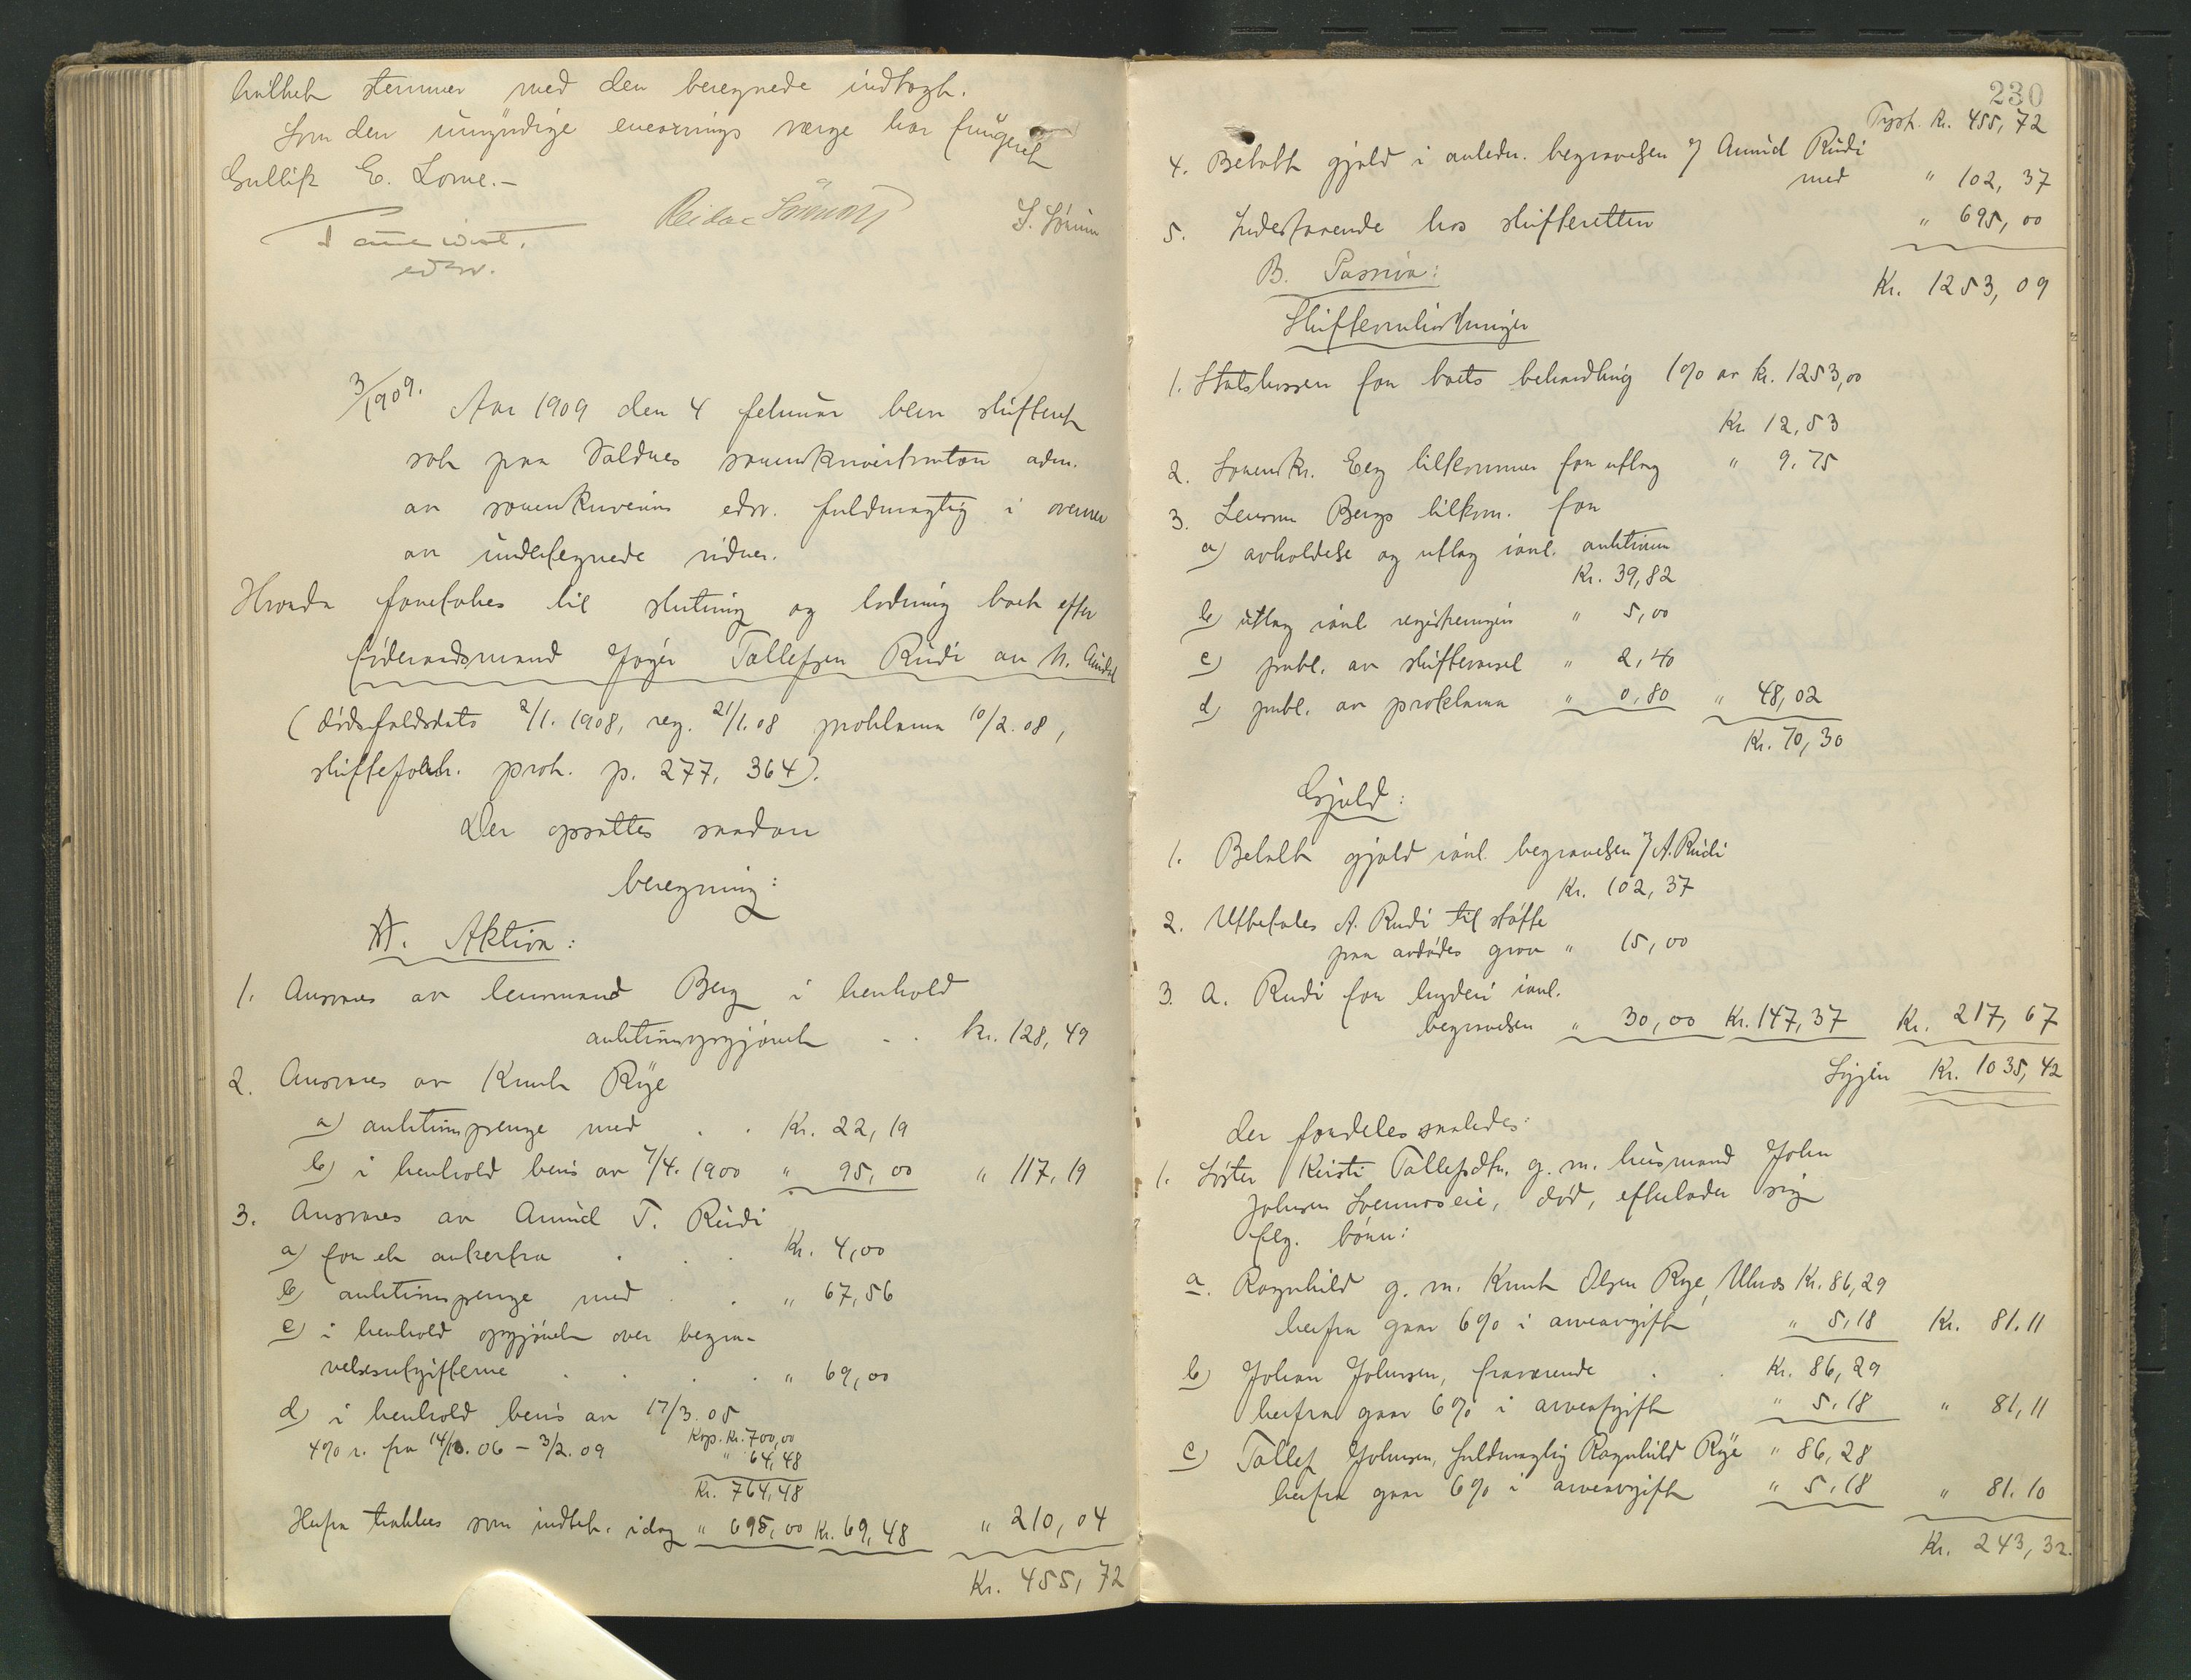 hvilket stemmer med den beregnede indtægt.
Som den umyndige enearvings verge har fungeret
Gullik E. Lome.-
Reidar
edsv.
3/1909.
Aar 1909 den 4 februar blev skifteret
sat paa Valdres sorenskriverkontor adm.
av sorenskriverens edsv. fuldmægtig i overvær
av undertegnede vidner.
Hvorda foretokes til slutning og lodning boet efter
føderaadsmand Jøger Tollefsen Rudi av N. Aurdal
(dødsfaldsdato 2/1. 1908, reg. 21/1. 08 proklama 10/2. 08,
skifteforh. prot. p. 277, 364).
Der opsattes saadan
beregning:
A. Aktiva:
1. Ansvares av lensmand Berg i henhold
auktionsopgjøret . . kr. 128,49
2. Ansvares av Knut Rye
a) auktionspenge med . . Kr. 22,19
b) i henhold bevis av 7/4. 1900 " 95,00 " 117,19
3. Ansvares av Amund T. Rudi
a) for et ankerfra . . Kr. 4,00
b) auktionspenge med . . " 67,56
c) i henhold opgjøret over begra-
velsesutgifterne . . . . " 69,00
d) i henhold bevis av 17/3. 05
Kap. Kr. 700,00
4% r. fra 14/10. 06 - 3/2. 09 " 64,48
Kr. 764,48
Herfra trækkes som indbet. idag " 695,00 Kr. 69,48 " 210,04
Kr. 455,72
230
Tpsrt. Kr. 455,72
4. Betalt gjæld i anledn. begravelsen v/ Amund Rudi
med " 102,37
5. Indestaaende hos skifteretten " 695,00
Kr. 1253,09
B. Passiva:
Skifteomkostninger
1. Statskassen for boets behandling 1% av kr. 1253,00
Kr. 12,53
2. Sorenskr. Eeg tilkommer for utlæg " 9,75
3. Lensm. Bergs tilkom. for
a) avholdelse og utlæg ianl. auktionen
Kr. 39,82
b) utlæg ianl. registreringen " 5,00
c) publ. av skiftevarsel " 2,40
d) publ. av proklama " 0,80 " 48,02
Kr. 70,30
Gjæld:
1. Betalt gjæld ianl. begravelsen v/ A. Rudi
Kr. 102,37
2. Utbetales A. Rudi til støtte
paa avdødes grav " 15,00
3. A. Rudi for bryderi ianl.
begravelsen " 30,00 Kr. 147,37 Kr. 217,67
Igjen Kr. 1035,42
der fordeles saaledes:
1. Søster Kirsti Tollefsdtr. g. m. husmand John
Johnsen Svenneseie, død, efterlader sig
flg. børn:
a. Ragnhild g. m. Knut Olsen Rye, Ulnes Kr. 86,29
herfra gaar 6% i arveavgift " 5,18 Kr. 81.11
b) Johan Johnsen, fraværende . . Kr. 86,29
herfra gaar 6% i arveafgift " 5,18 " 81,11
c) Tollef Johnsen, fuldmægtig Ragnhild Rye " 86,28
herfra gaar 6% i arveavgift " 5,18 " 81.10
Kr. 243,32.